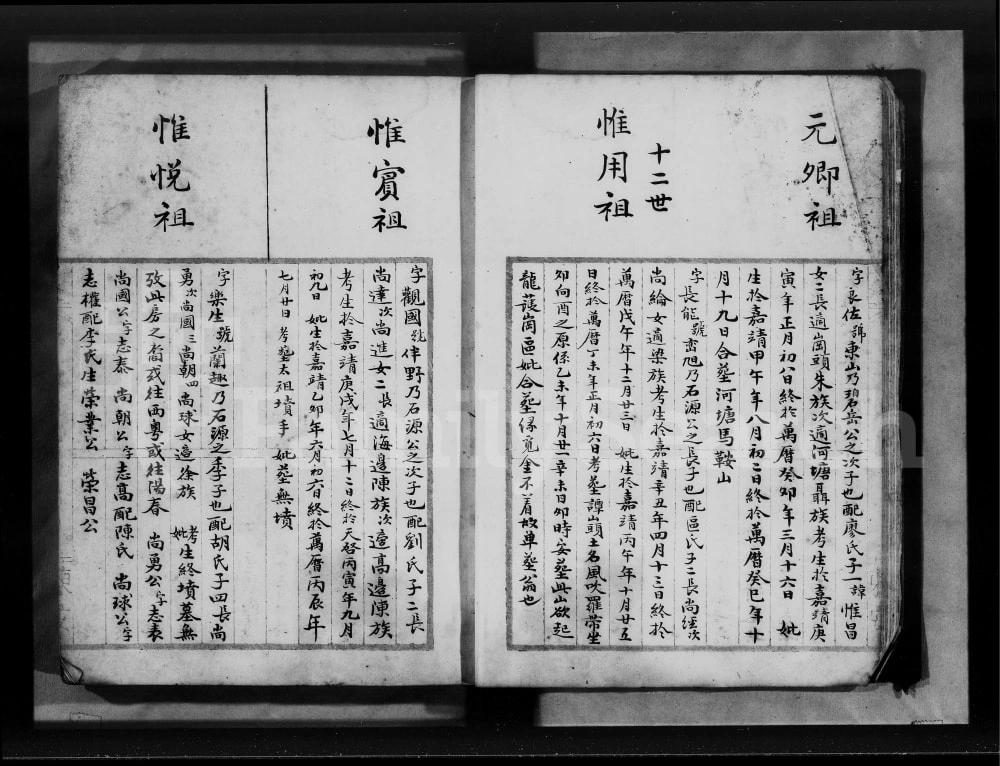 元卿祖
字良佐號東山乃碧岳公之次子也配廖氏子一諱惟昌
女二長適崗頭朱族次適河塘聶族考生於嘉靖庚
寅年正月初八日終於萬曆癸卯年三月十六日 妣
生於嘉靖甲午年八月初二日終於萬曆癸巳年十
月十九日合塟河塘馬鞍山
十二世
惟用祖
字長能號
旭乃石源公之長子也配區氏子二長尚經次
尚綸女適梁族考生於嘉靖辛丑年四月十三日終於
萬曆戊午年十二月廿三日 妣生於嘉靖丙午年十月廿五
日終於萬曆丁未年正月初六日考塟譚崗頭土名風吹羅帶坐
卯向酉之原係乙未年十月廿一辛未日卯時安塟此山欲起
龍蔆崗區妣合塟緣覓金不着故单塟翁也
惟賓祖
字觀國號伴野乃石源公之次子也配劉氏子二長
尚達次尚進女二長適海邊陳族次適高邊陳族
考生於嘉靖庚戌年七月十二日終於天啓丙寅年九月
初九日 妣生於嘉靖乙卯年六月初六日終於萬曆丙辰年
七月廿日 考塟太祖墳手 妣塟無墳
惟悅祖
字樂生號蘭趣乃石源之季子也配胡氏子四長尚
勇次尚國三尚朝四尚球女適徐族 考妣生終墳墓無
攷此房之裔或往西粵或往陽春 尚勇公字志表
尚國公字志泰 尚朝公字志高配陳氏 尚球公字
志權配李氏生榮業公 榮昌公